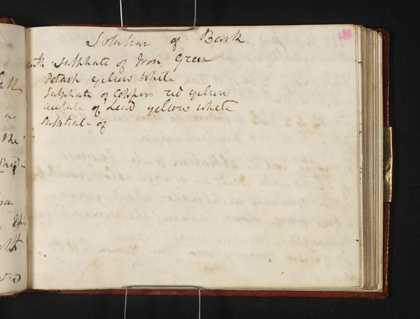 Solution of Bark
with Sulphate of Iron Green
Potash yellow White
Sulphate of Copper red yellow
Acetate of Lead yellow white
of